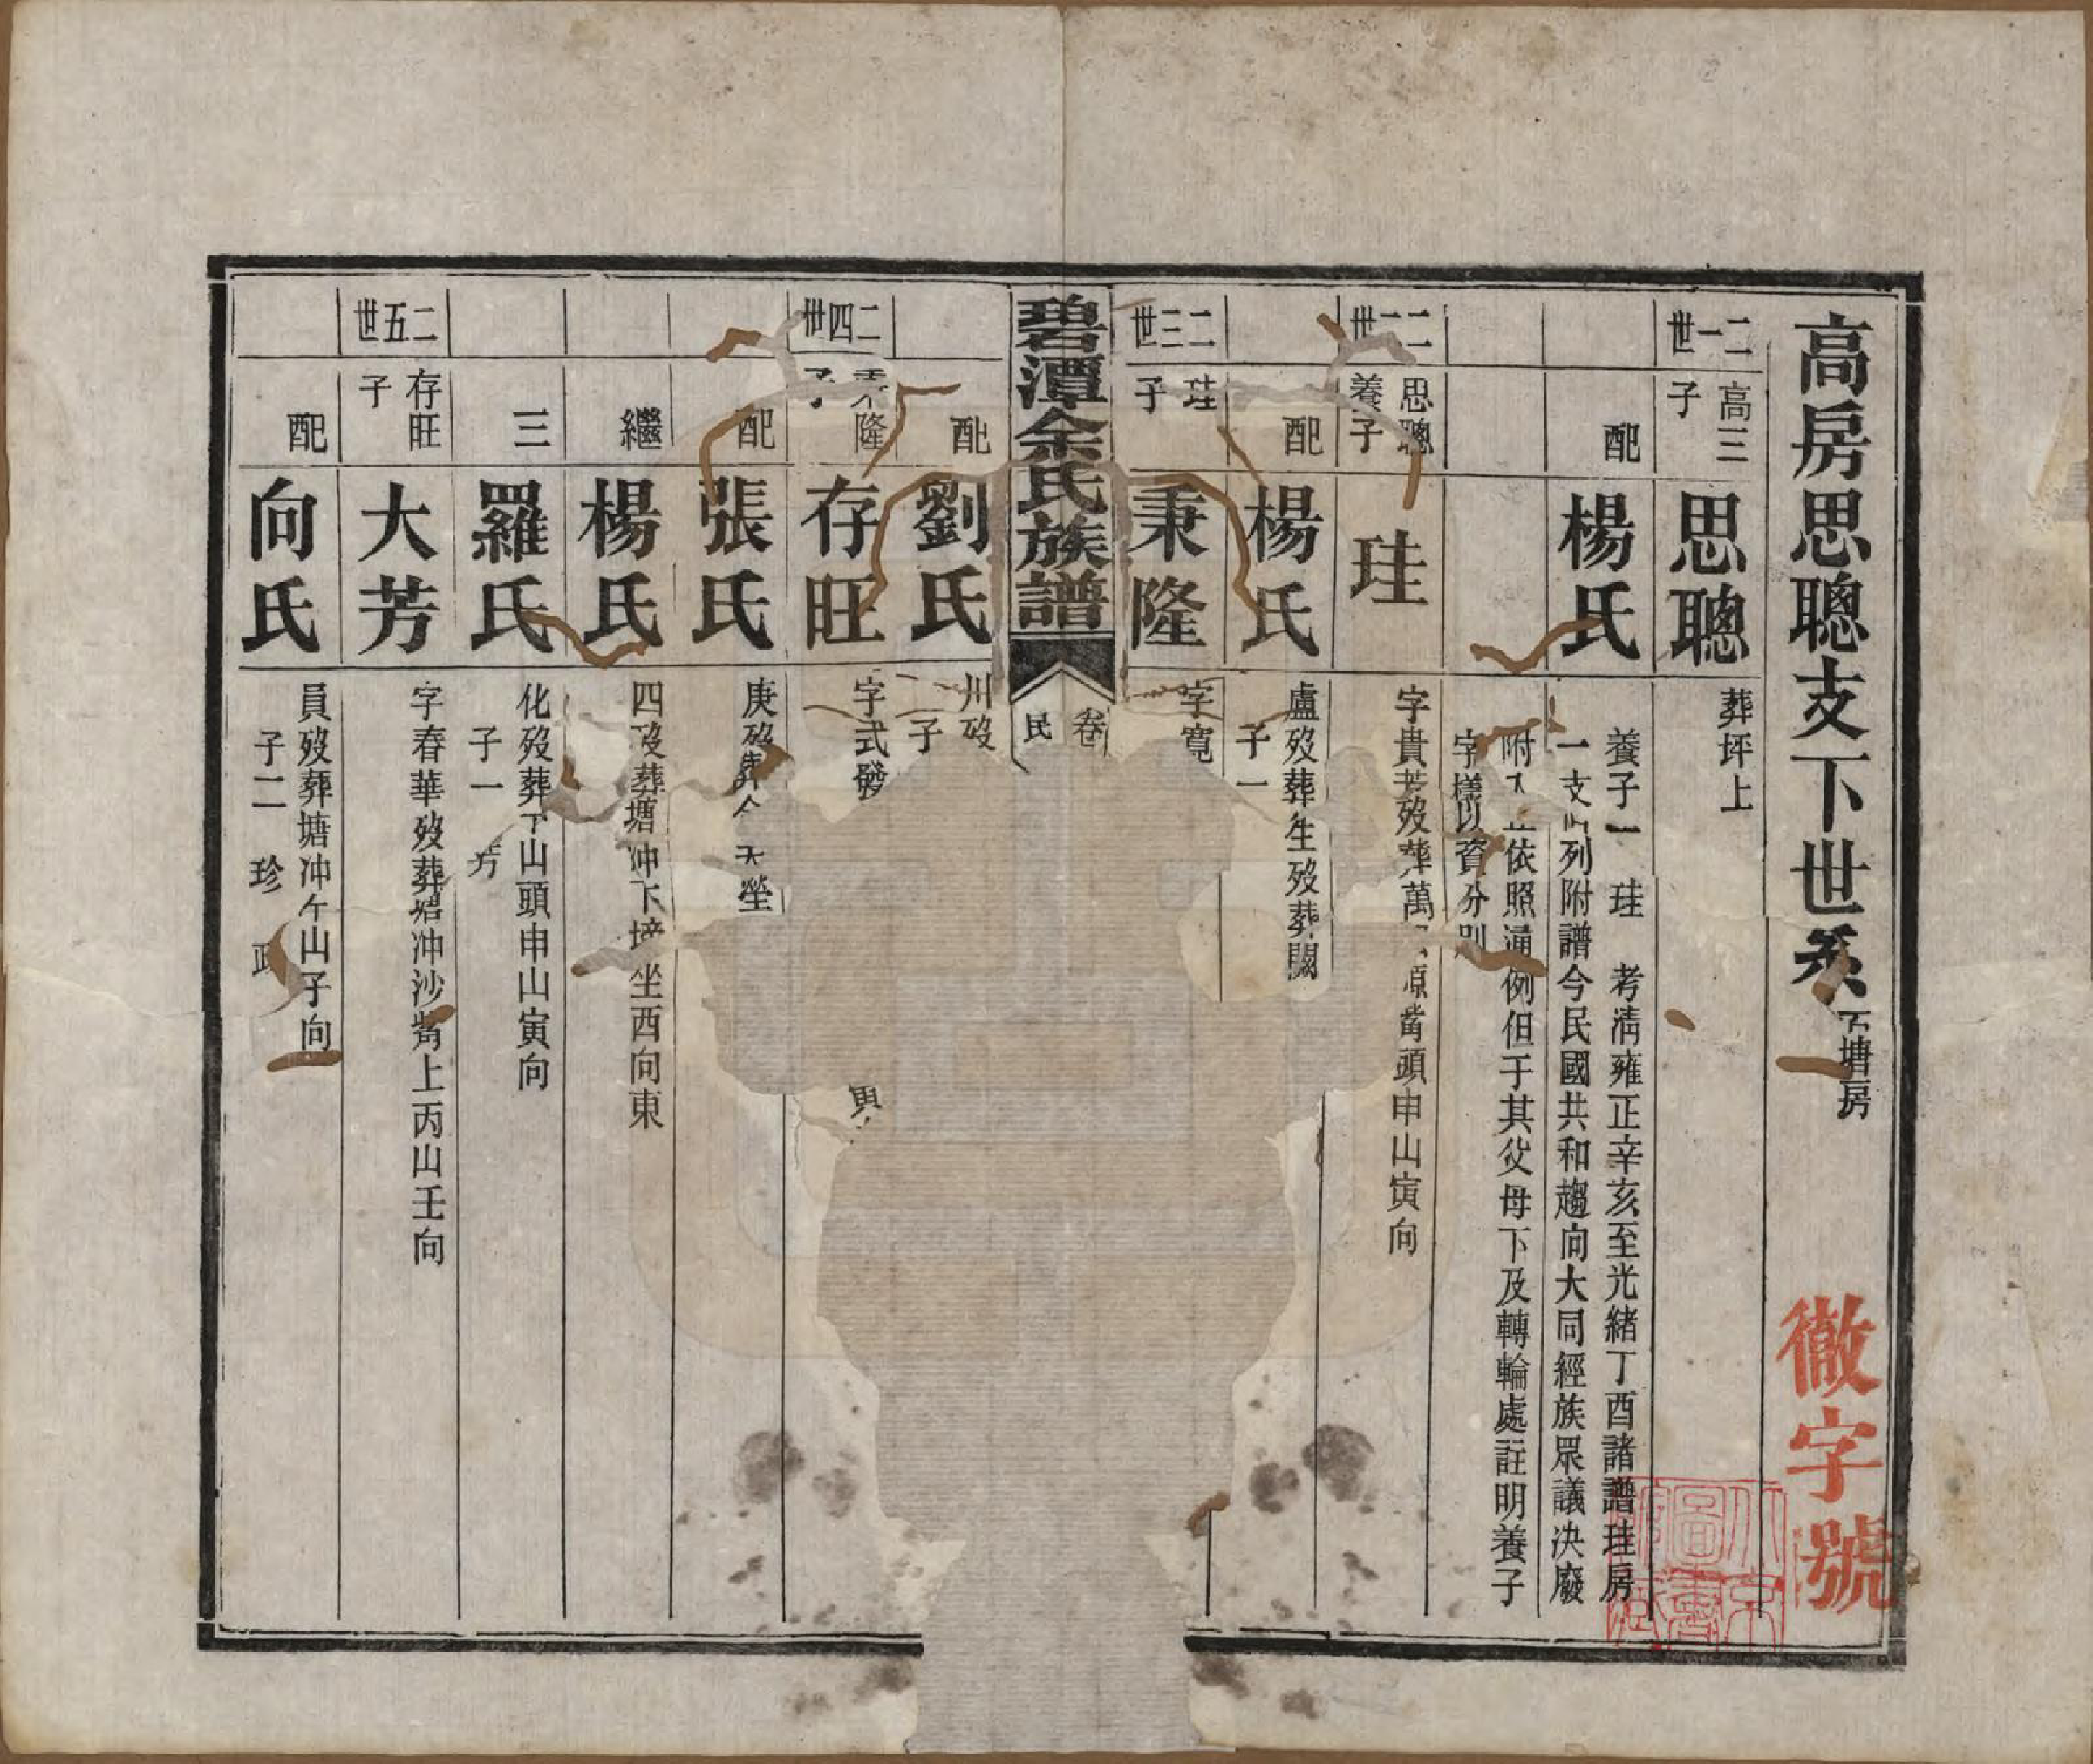 高房思聰支下世系 石塘房
徽字號
二一世 高三子 思聰 葬坪上
配 楊氏 養子一 珪 考清雍正辛亥至光緒丁酉諸譜珪房
一支 列附譜今民國共和趨向大同經族眾議決廢
附 依照通例但于其父母下及轉輪處註明養子
字樣以資分別
二二世 思聰養子 珪 字貴 歿葬萬 原嘴頭申山寅向
配 楊氏 盧歿葬 生歿葬闕
子一
二三世 珪子 秉隆 字寬
碧潭余氏族譜 卷 民
配 劉氏 州歿
子
二四世 秉隆子 存旺 字式發
配 張氏 庚歿葬 塋
繼 楊氏 四歿葬塘冲下塝坐西向東
三 羅氏 化歿葬 山頭申山寅向
子一 芳
二五世 存旺子 大芳 字春華歿葬塘冲沙嘴上丙山壬向
配 向氏 員歿葬塘冲午山子向
子二 珍 政